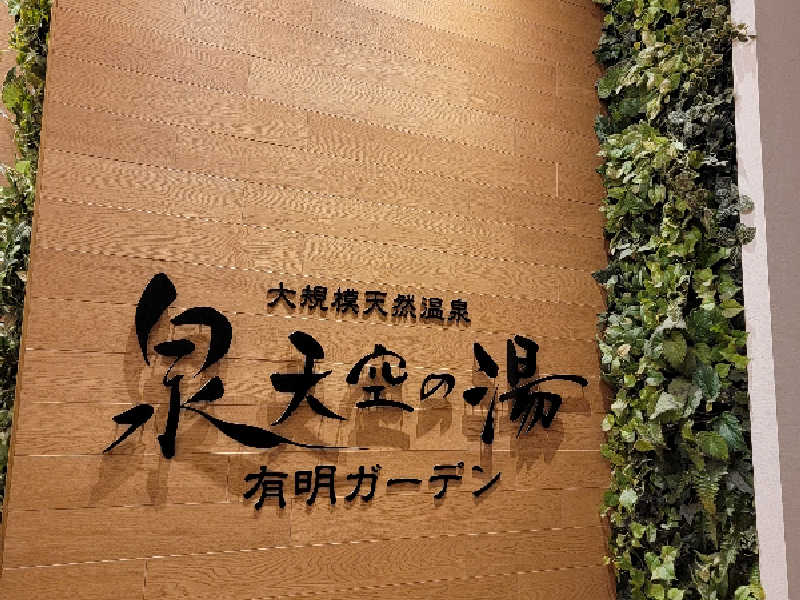 大規模天然温泉
泉天空の湯
有明ガーデン